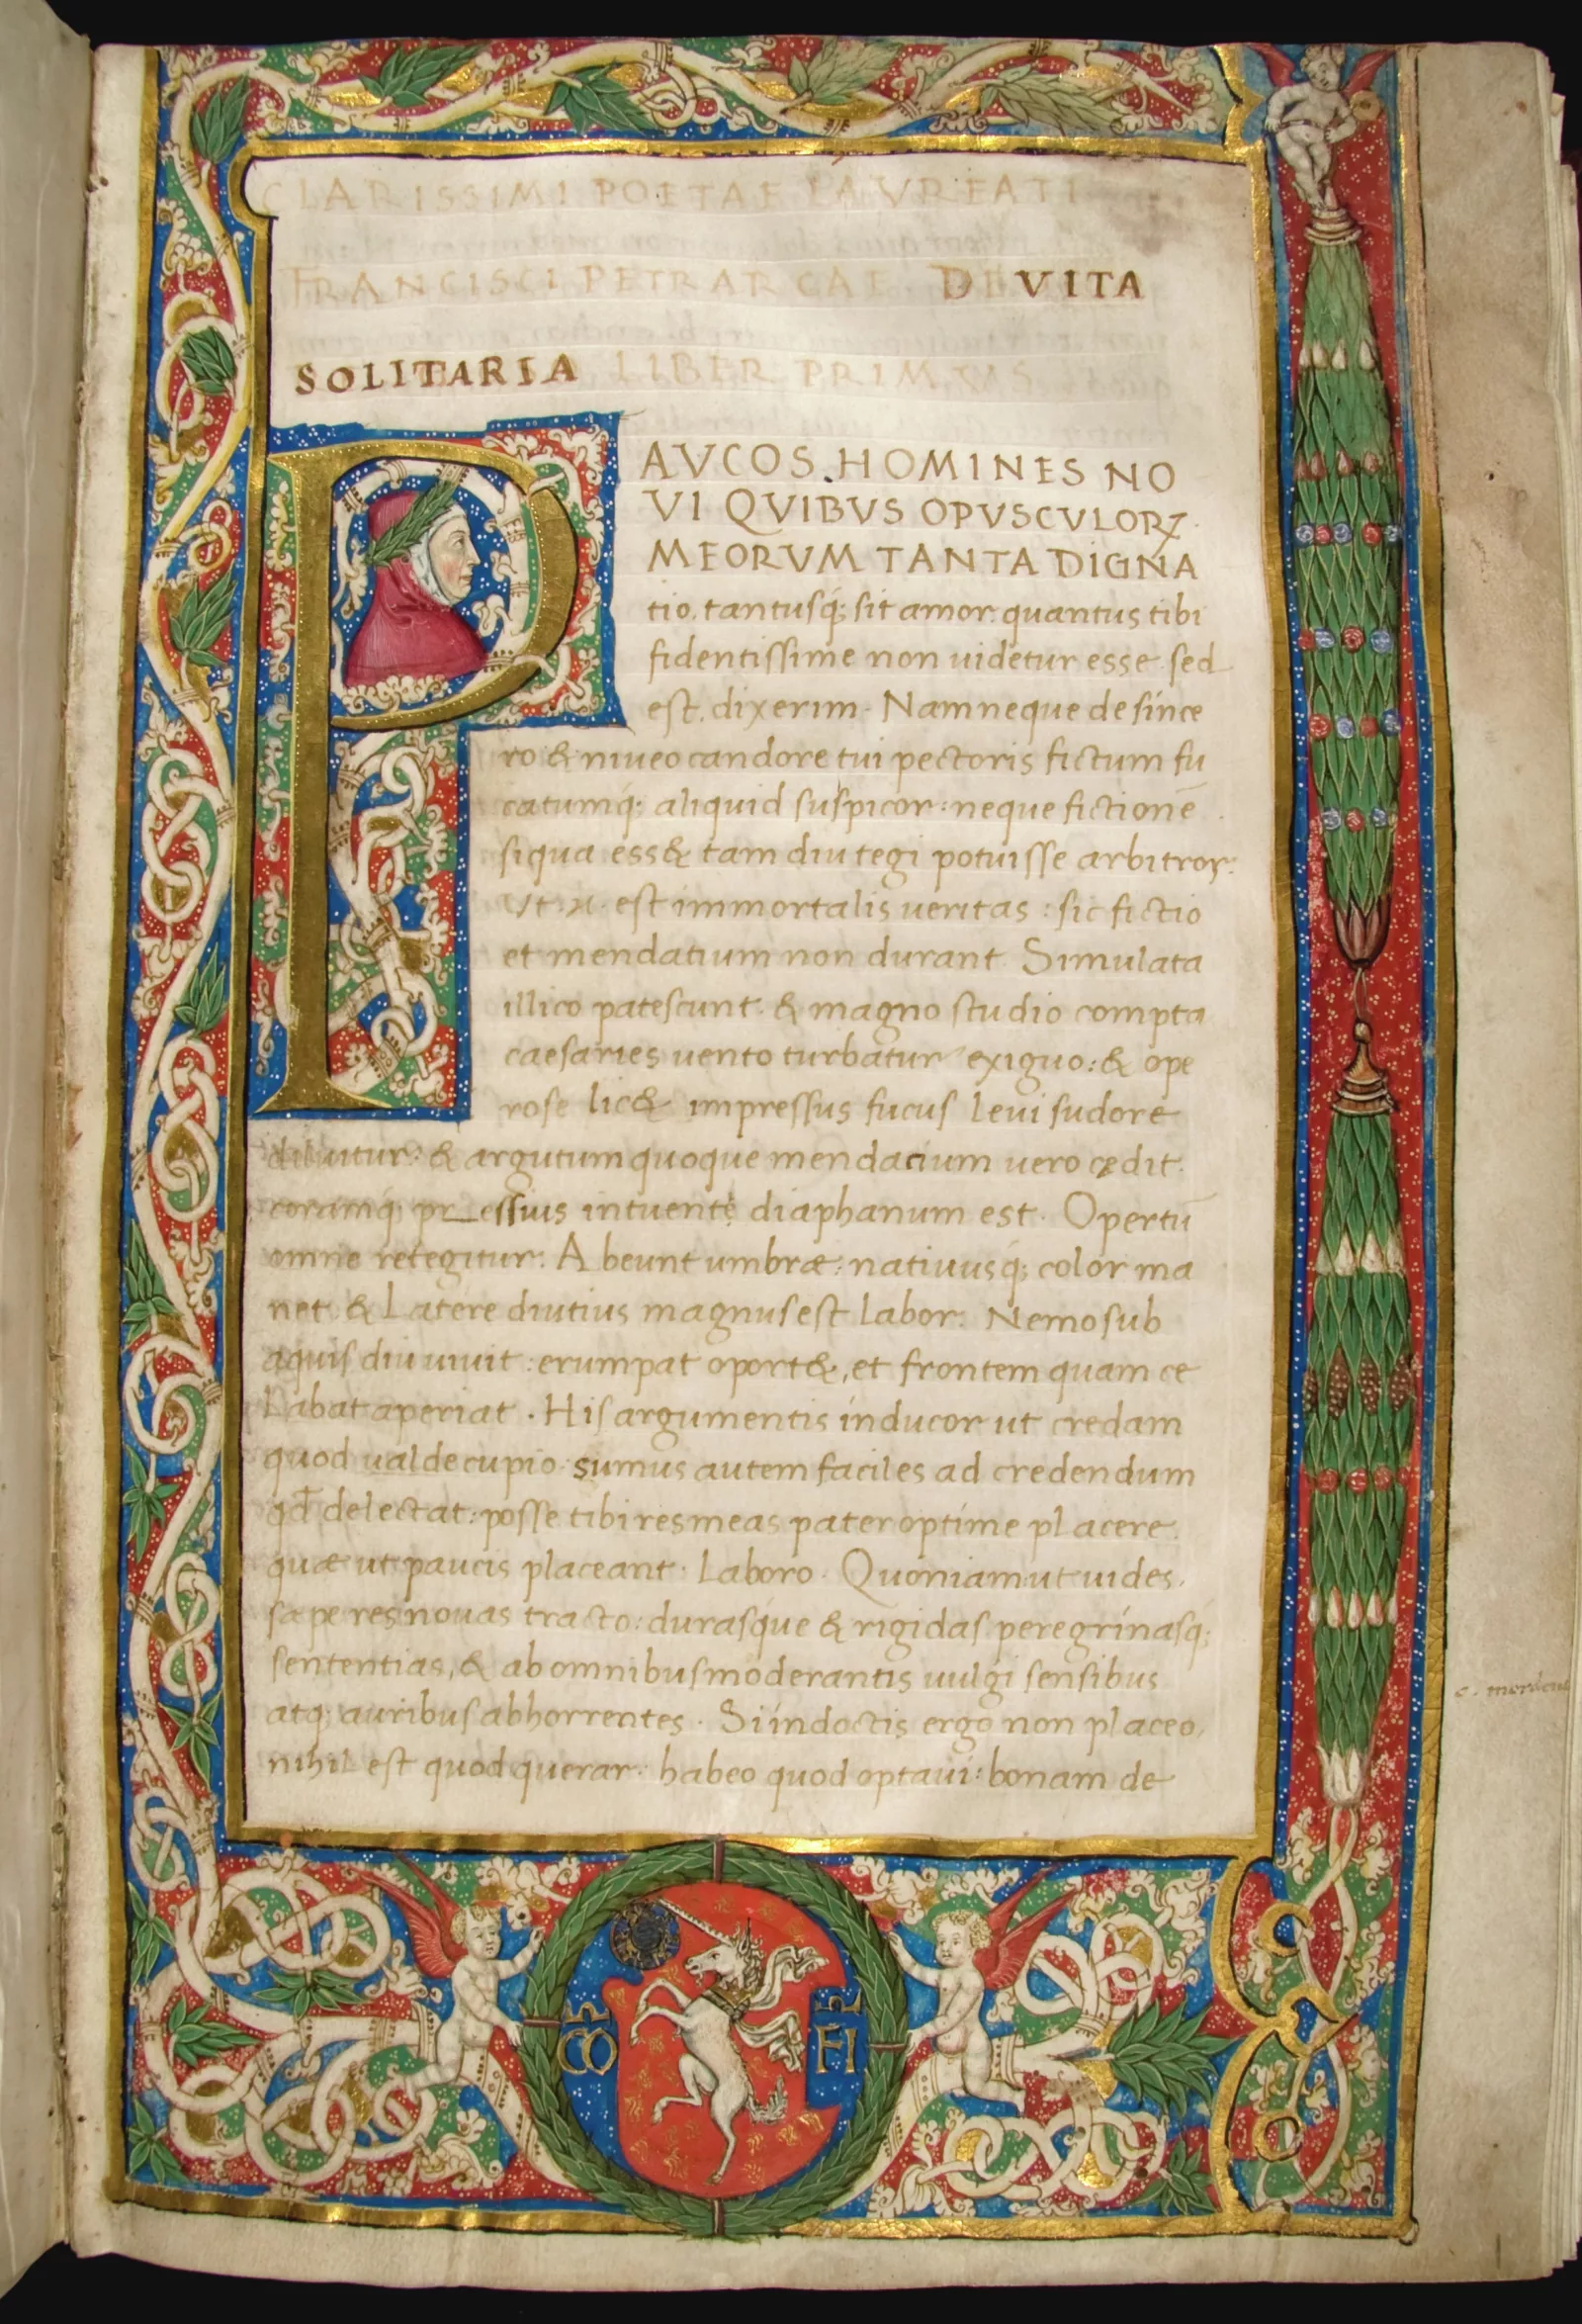 CLARISSIMI POETAE LAVREATI
FRANCISCI PETRARCAE DE VITA
SOLITARIA LIBER PRIMVS
PAVCOS HOMINES NO
VI QVIBVS OPVSCVLORꝜ
MEORVM TANTA DIGNA
tio. tantusq; sit amor: quantus tibi
fidentissime non uidetur esse sed
est. dixerim. Nam neque de since
ro & niueo candore tui pectoris fictum fu
catumq; aliquid suspicor: neque fictionē
siqua ess& tam diu tegi potuisse arbitror:
Vt .n. est immortalis ueritas: sic fictio
et mendatium non durant. Simulata
illico patescunt. & magno studio compta
caesaries uento turbatur exiguo: & ope
rose lic& impressus fucus leui sudore
diluitur: & argutum quoque mendacium uero cędit.
coramq; pr_essius intuente diaphanum est. Opertū
omne retegitur: Abeunt umbræ: natiuusq; color ma
net. & Latere diutius magnus est labor. Nemo sub
aquis diu uiuit: erumpat oport&, et frontem quam ce
labat aperiat. His argumentis inducor ut credam
quod ualde cupio. sumus autem faciles ad credendum
qđ delectat: posse tibi res meas pater optime placere.
quæ ut paucis placeant: Laboro. Quoniam ut uides.
sæpe res nouas tracto: durasque & rigidas peregrinasq;
sententias, & ab omnibus moderantis uulgi sensibus
atq; auribus abhorrentes. Si indoctis ergo non placeo,
nihil est quod querar: habeo quod optaui: bonam de